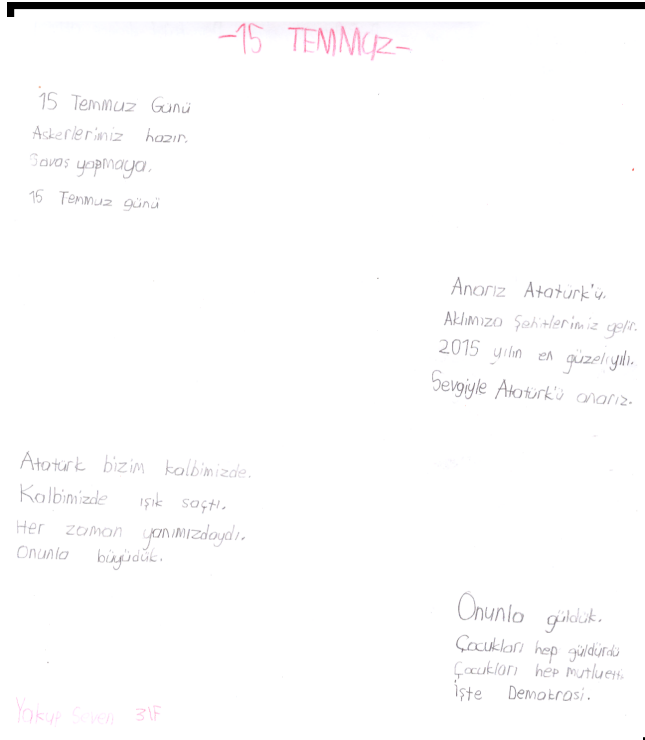 -15 TEMMUZ-
15 Temmuz Günü
Askerlerimiz hazır.
Savaş yapmaya.
15 Temmuz günü
Anarız Atatürk'ü.
Aklımıza şehitlerimiz gelir.
2015 yılın en güzel yılı.
Sevgiyle Atatürk'ü anarız.
Atatürk bizim kalbimizde.
Kalbimizde ışık saçtı.
Her zaman yanımızdaydı.
Onunla büyüdük.
Onunla güldük.
Çocukları hep güldürdü
Çocukları hep mutlu etti.
İşte Demokrasi.
Yakup Seven 3\F